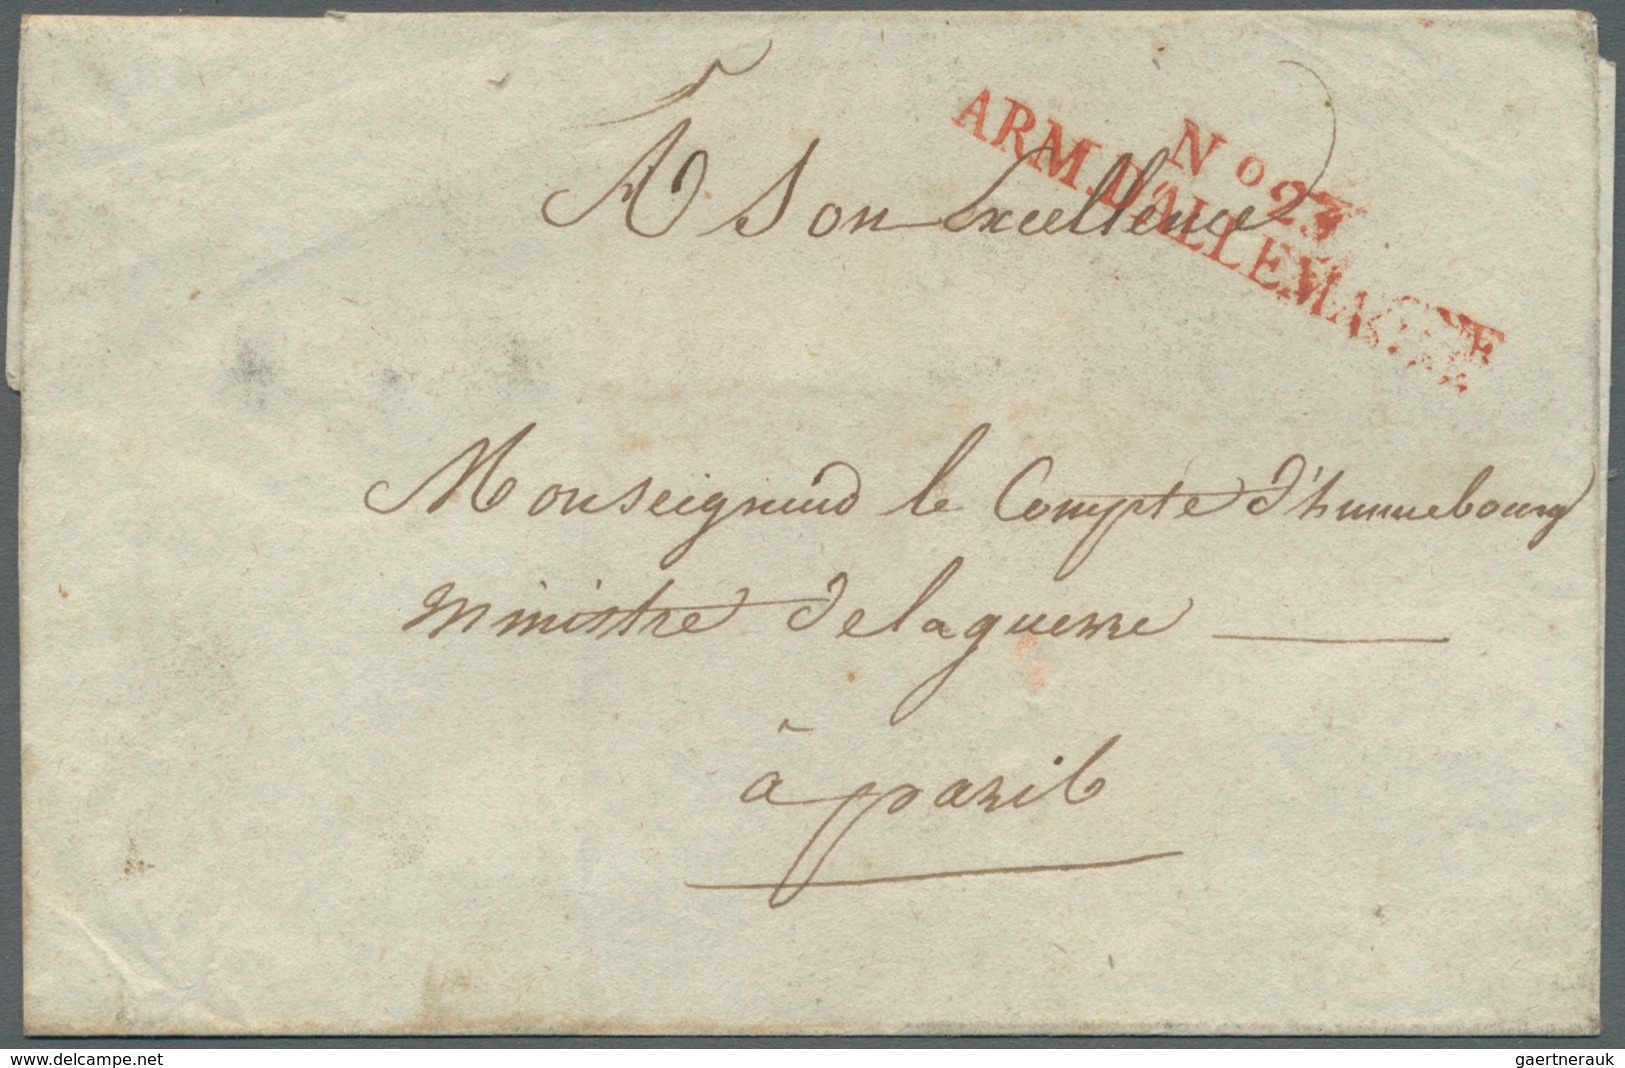 A Son Excellence
No 23
ARM.D'ALLEMAGNE
Monseigneur le Compte d'hunnebourg
ministre de la guerre
à paris
www.delcampe.net
gaertnerauk